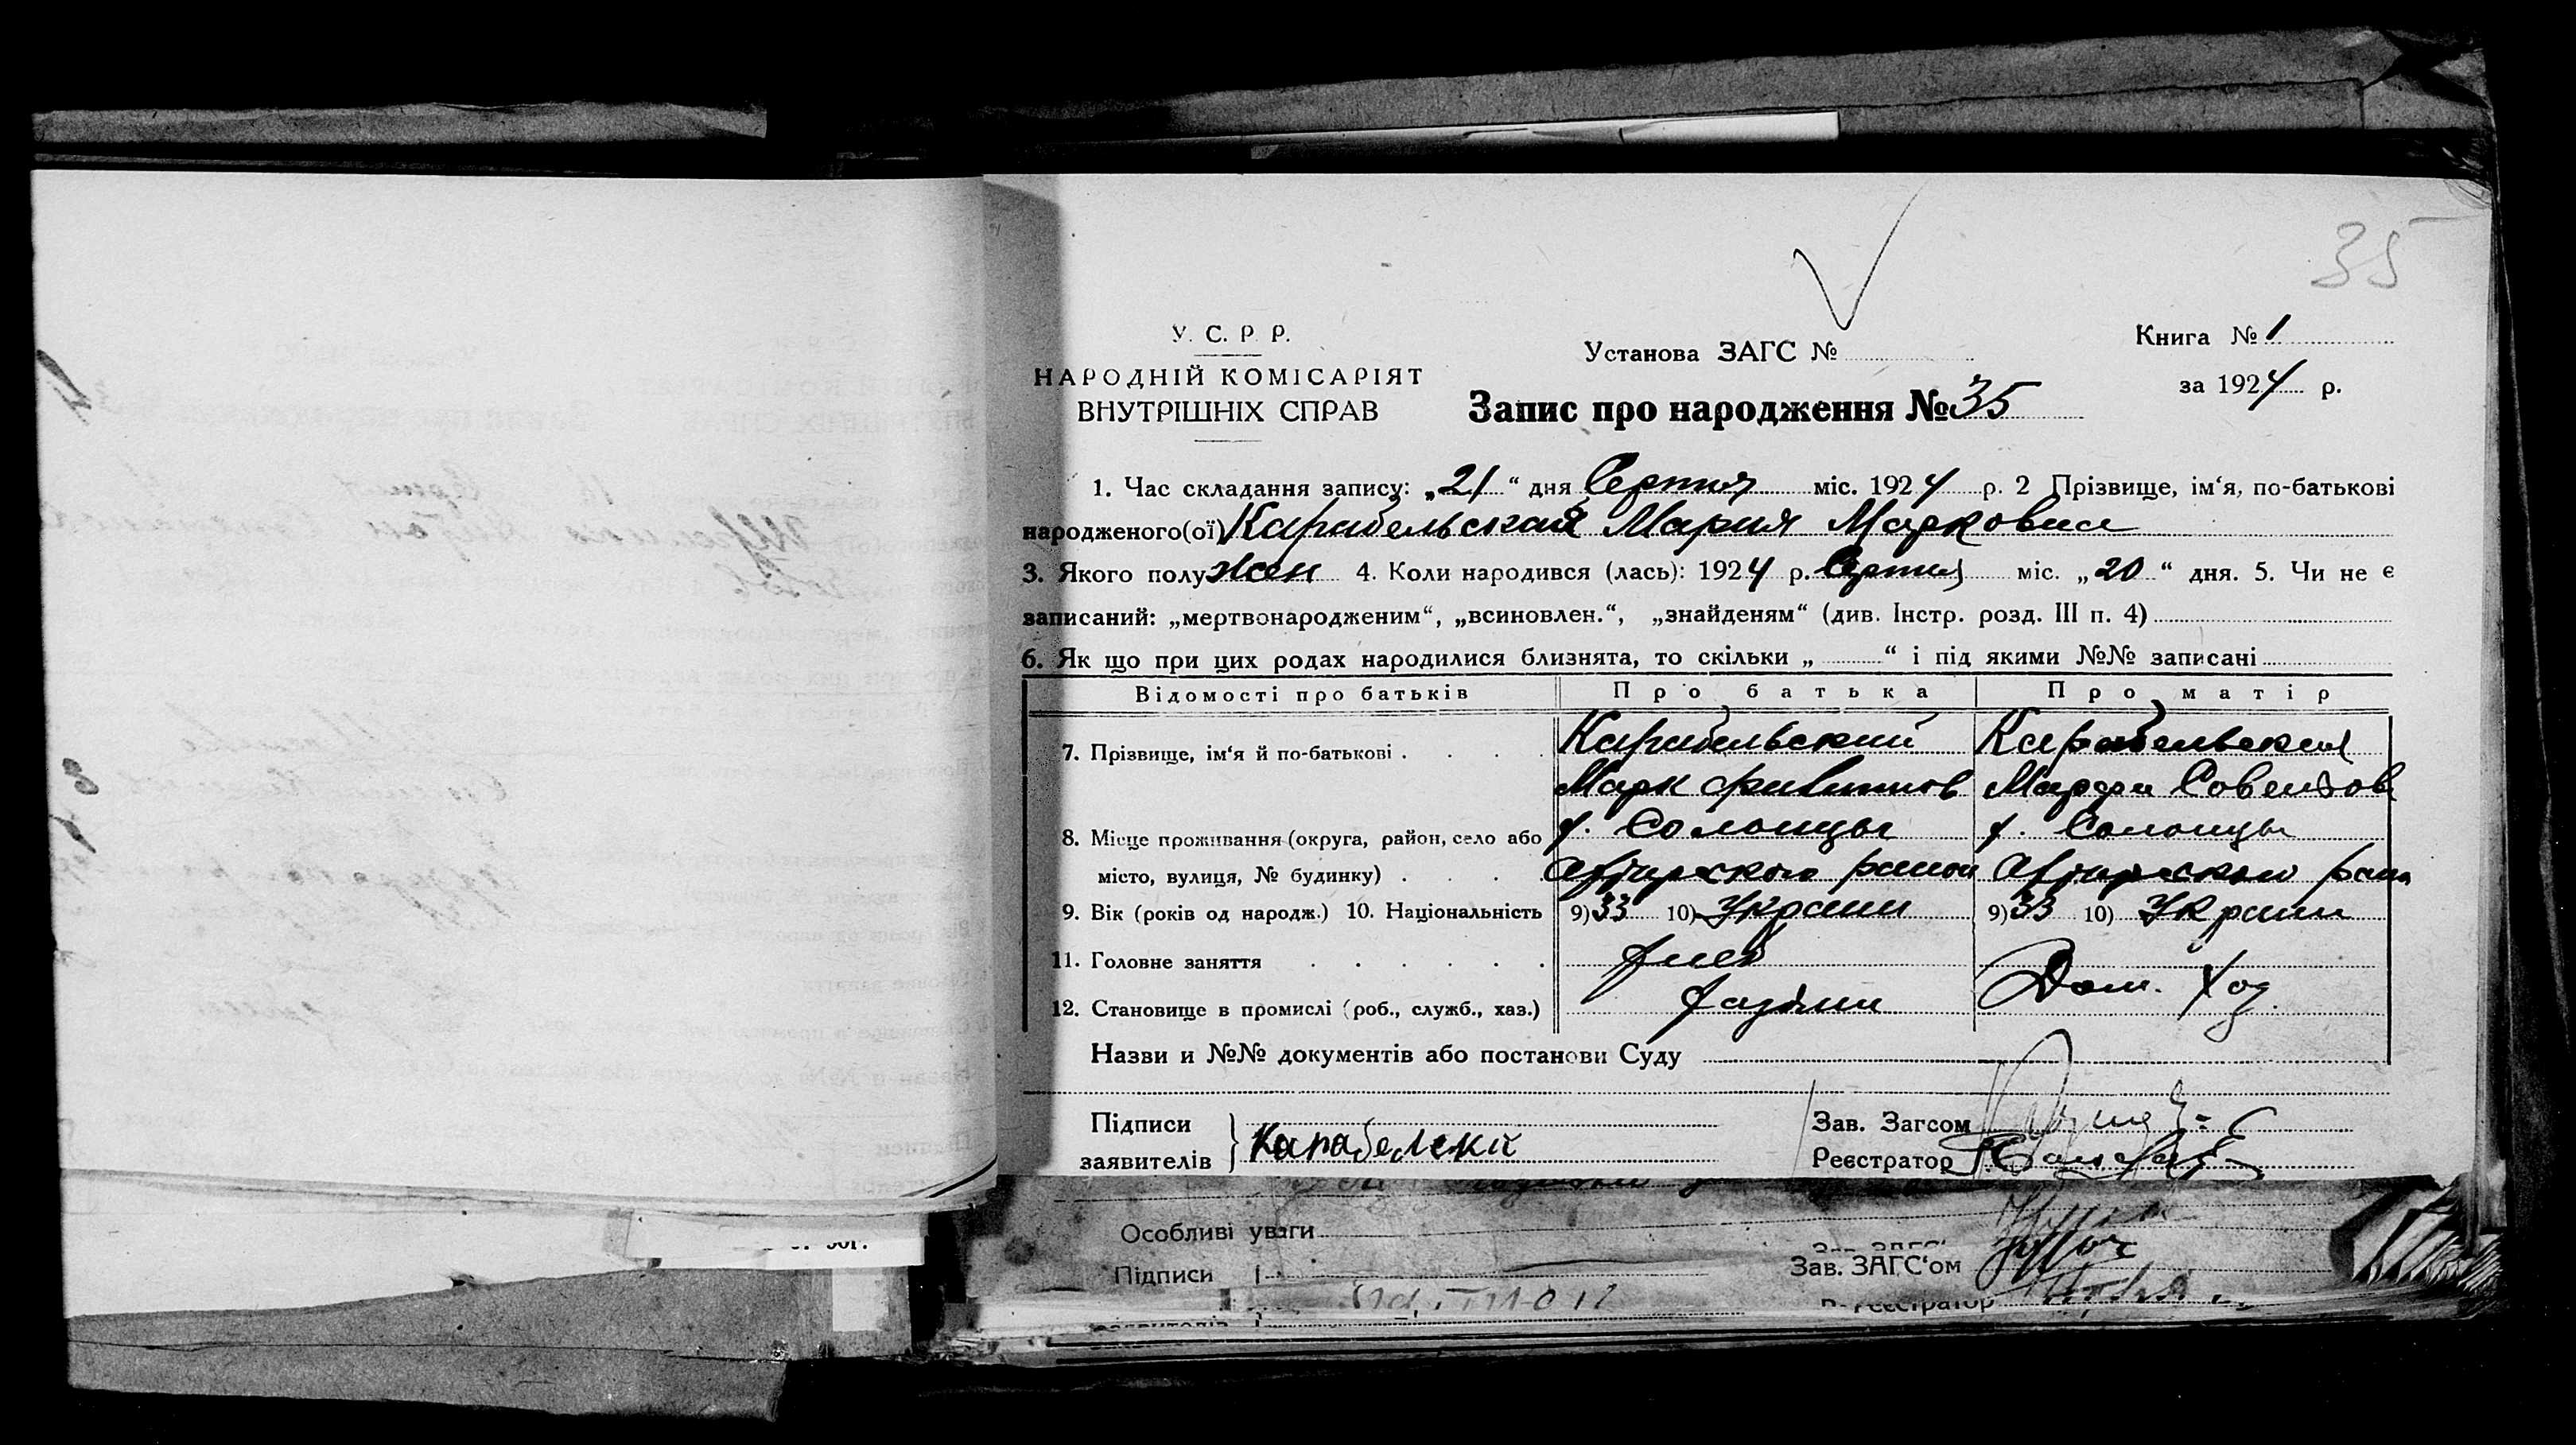 35
У. С. Р. Р.
НАРОДНІЙ КОМІСАРІЯТ
ВНУТРІШНІХ СПРАВ
Установа ЗАГС №
Запис про народження № 35
Книга № 1
за 1924 р.
1. Час складання запису: „21“ дня Серпня міс. 1924 р. 2 Прізвище, ім‘я, по-батькові
народженого(ої) Карабельская Мария Марковна
3. Якого полу жен 4. Коли народився (лась): 1924 р. Серпня міс. „20“ дня. 5. Чи не є
записаний: „мертвонародженим“, „всиновлен.“, „знайденям“ (див. Інстр. розд. III п. 4)
6. Як що при цих родах народилися близнята, то скільки „ “ і під якими №№ записані
Відомості про батьків Про батька Про матір
7. Прізвище, ім‘я й по-батькові Карабельский Карабельская
Марк Марфа
8. Місце проживання (округа, район, село або Солонцы Солонцы
місто, вулиця, № будинку)
9. Вік (років од народж.) 10. Національність 9) 33 10) Украин 9) 33 10) Украин
11. Головне заняття
12. Становище в промислі (роб., служб., хаз.) Дом. Хоз
Назви и №№ документів або постанови Суду
Підписи
заявителів Карабелски
Зав. Загсом
Реєстратор
Особливі уваги
Зав. ЗАГС‘ом
Підписи